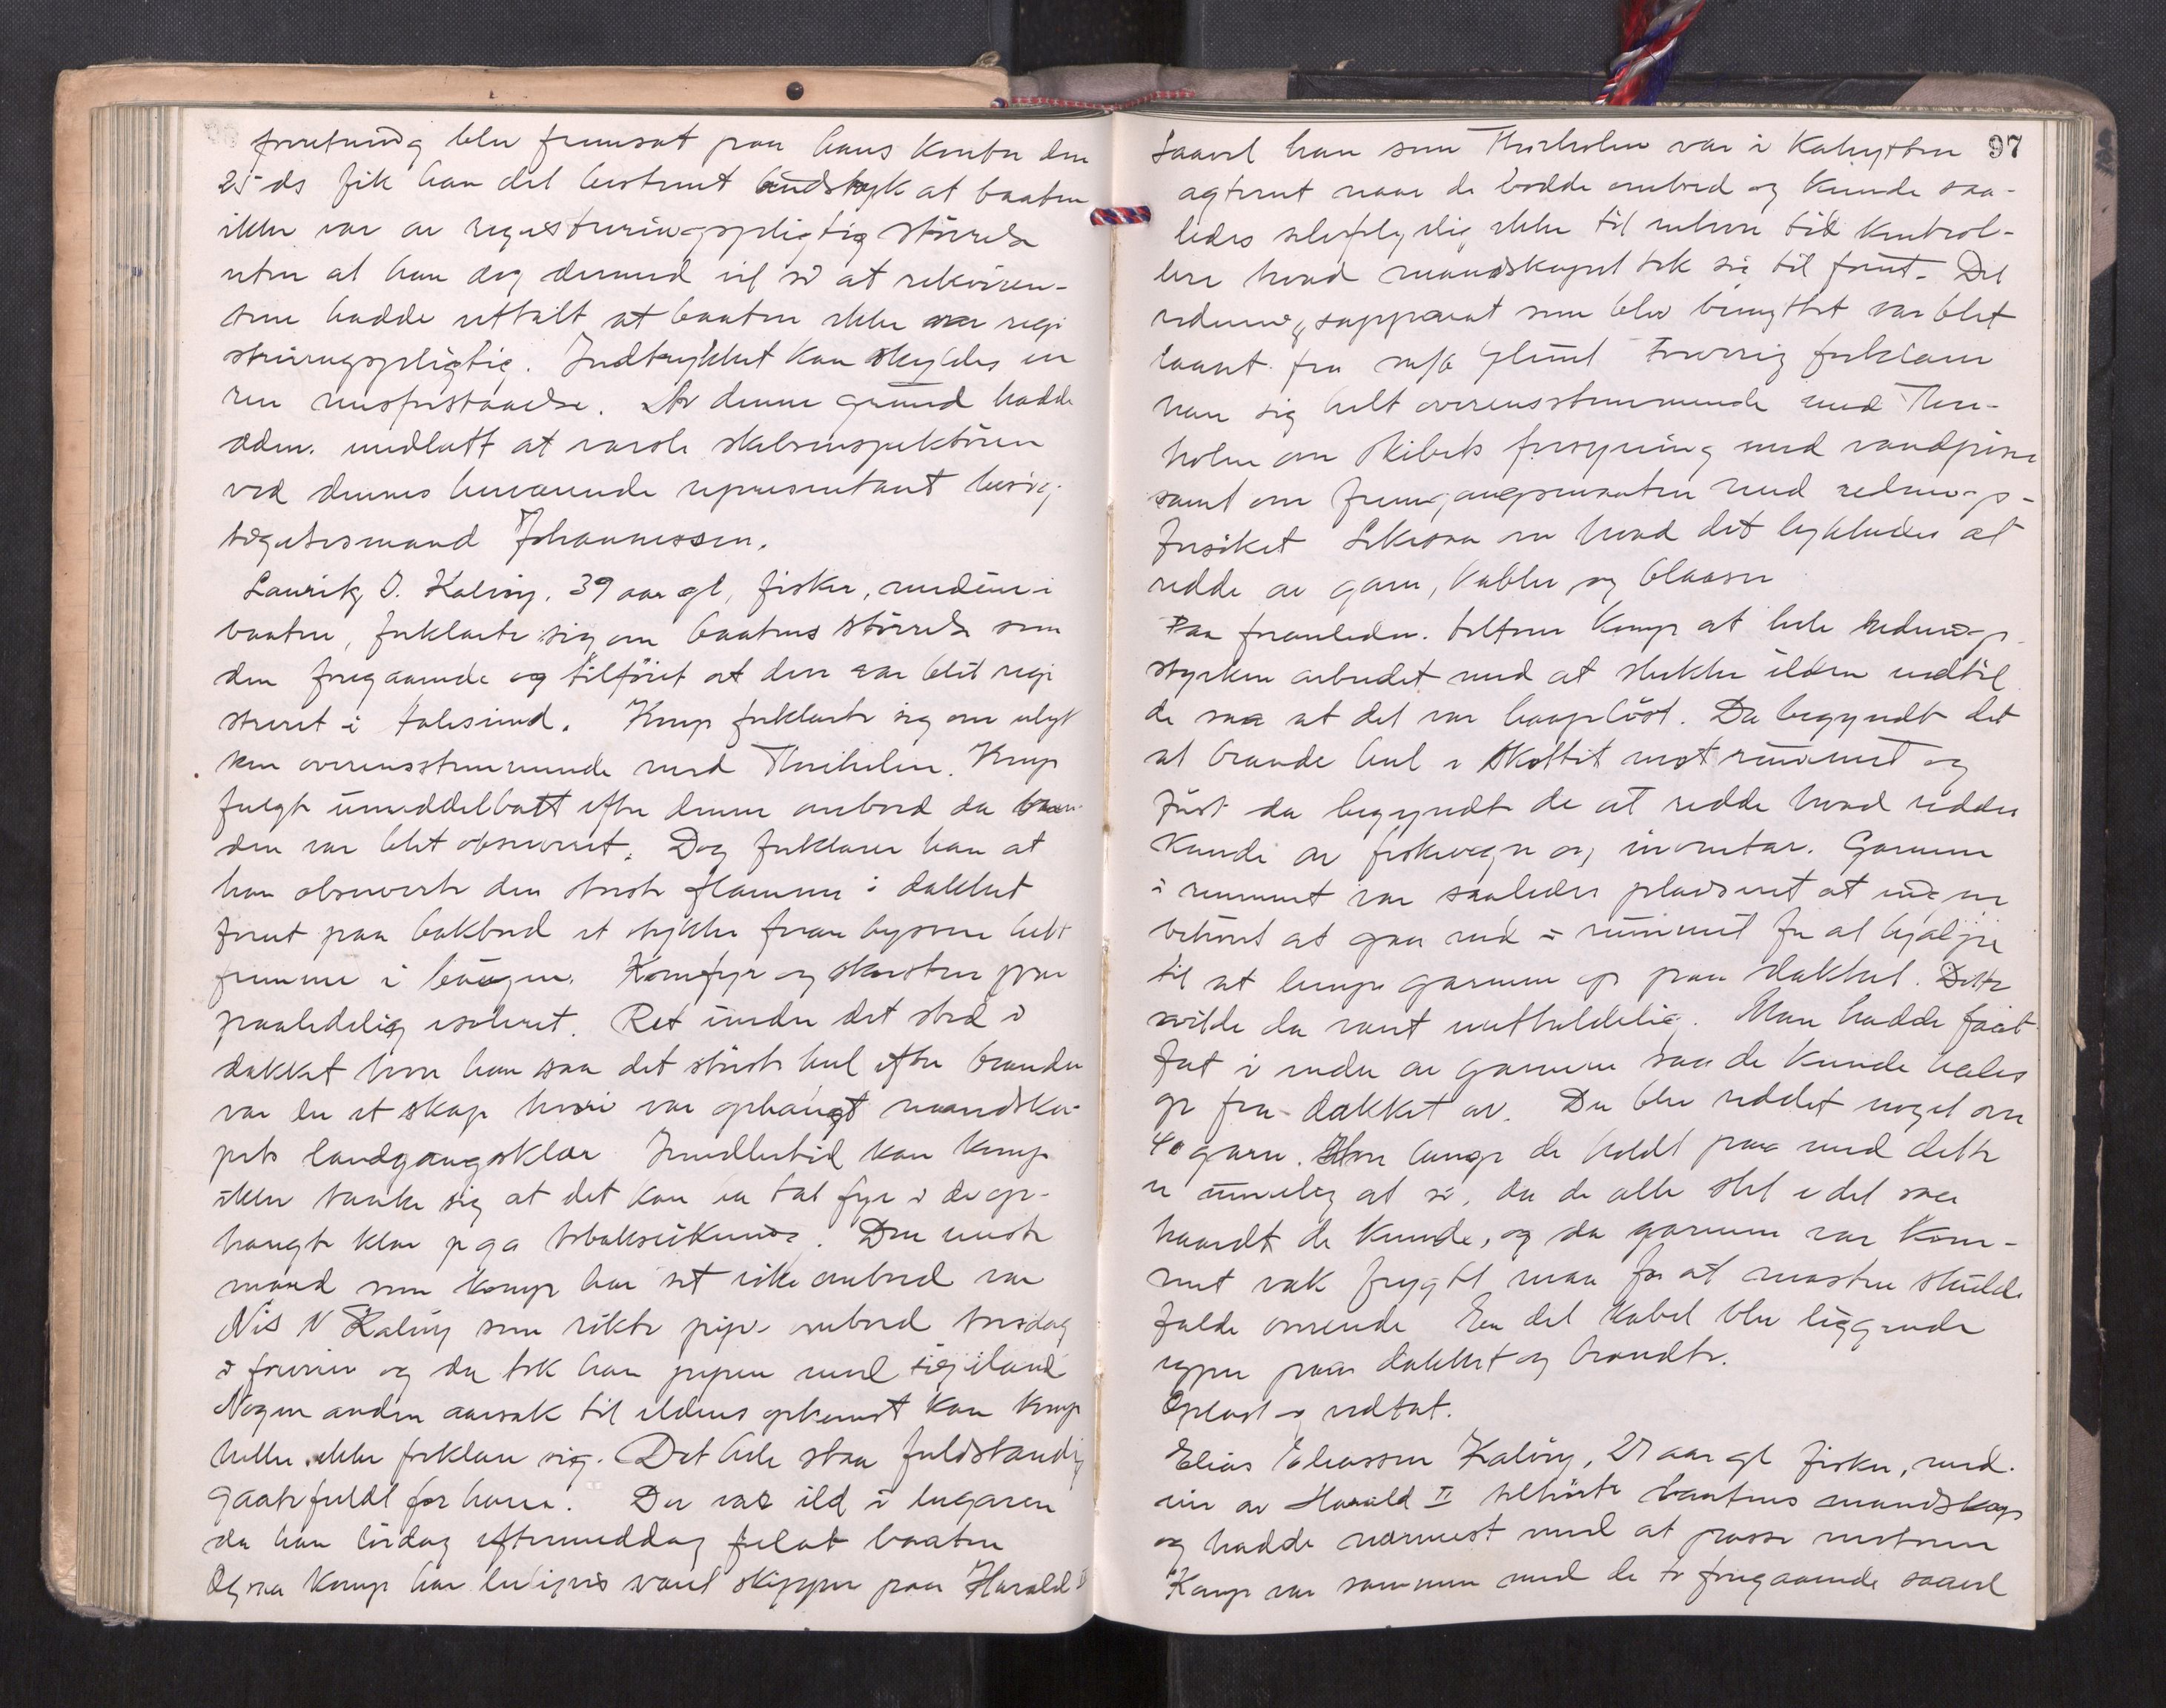 forretning blev fremsat paa hans kontor den
25 ds fik han det bestemt indtryk at baaten
ikke var av registreringspligtig størrelse
uten at han dog dermed vil si at rekvirent-
ene hadde uttalt at baaten ikke var regi
streringspligtig. Indtrykket kan skyldes en
ren misforstaaelse. Av denne grund hadde
adm. undlatt at varsle skibsinspektøren
ved dennes herværende representant besig-
tigelsesmand Johannessen.
Laurits O. Kalvøy, 39 aar gl, fisker, medeier i
baaten, forklarte sig om baatens størrelse som
den foregaaende og tilføiet at den var blit regi
streret i Aalesund. Komp forklarte sig om ulyk
ken overensstemmende med Thorholm. Komp
fulgte umiddelbart efter denne ombord da bran-
den var blit observeret. Dog forklarer han at
han observerte den første flamme i dækket
forut paa babord et stykke foran byssen helt
fremme i baugen. Komfyr og skorsten var
paalidelig isoleret. Ret under det sted i
dækket hvor han saa det største hul efter branden
var der et skap hvori var ophængt mandska-
pets landgangsklær Imidlertid kan komp
ikke tænke sig at det kan ha tat fyr i de op-
hængte klær p ga tobaksrøkning. Den eneste
mand som komp har set røke ombord var
Nils N Kalvøy som røkte pipe ombord torsdag
i forveien og da tok han pipen med sig iland
Nogen anden aarsak til ildens opkomst kan komp
heller ikke forklare sig. Det hele staar fuldstændig
gaatefuldt for ham. Der var ild i lugaren
da han lørdag eftermiddag forlot baaten
Ogsaa komp har leilighetsvis været skipper paa Harald II
97
Saavel han som Thorholm var i kahytten
agterut naar de bodde ombord og kunde saa-
ledes selvfølgelig ikke til enhver tid kontrol-
lere hvad mandskapet tok sig til forut. Det
redningsapparat som blev benyttet var blit
laant fra m/k Glimt Forøvrig forklarer
han sig helt overensstemmende med Thor-
holm om skibets forsyning med vandpøser
samt om fremgangsmaaten med rednings-
forsøket Likesaa om hvad det lykkedes at
redde av garn, kabler og blaaser
Paa foranledn. tilføier komp at hele rednings-
styrken arbeidet med at slukke ilden indtil
de saa at det var haapløst. Da begyndte det
at brænde hul i skottet mot rummet og
først da begyndte de at redde hvad reddes
kunde av fiskevegn og inventar. Garnene
i rummet var saaledes plaseret at ingen
behøvet at gaa ned i rummet for at hjælpe
til at lempe garnene op paa dækket. Dette
vilde da været uutholdelig. Man hadde faat
fat i enden av garnene saa de kunde hales
op fra dækket av. Der blev reddet noget over
40 garn. Hvor længe de holdt paa med dette
er umulig at si, da de alle slet i det saa
haardt de kunde, og da garnene var kom-
met væk frygtet man for at masten skulde
falde overende En del kabel blev liggende
oppe paa dækket og brændte.
Oplæst og vedtat.
Elias Eliassen Kalvøy, 27 aar gl fisker, med.
eier av Harald II tilhørte baatens mandskap
og hadde nærmest med at passe motoren
Komp var sammen med de to foregaaende saavel